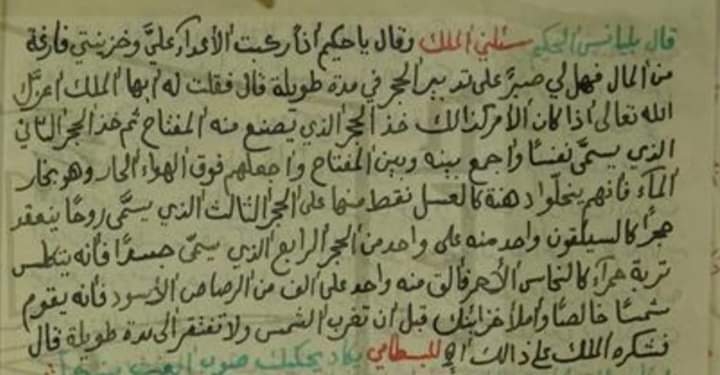 قال بليانس الحكيم سئلني الملك وقال ياحكيم اذا ركبت الأعداء عليّ وخزينتي فارغة
من المال فهل لي صبرًا على تدبير الحجر في مدة طويلة قال فقلت له ايها الملك اعزك
الله تعالى اذا كان الأمر كذالك خذ الحجر الذي يصنع منه المفتاح ثم خذ الحجر الثاني
الذي يسمّى نفسًا واجمع بينه وبين المفتاح واجعلهم فوق الهواء الحار وهو بخار
المآء فأنهم ينحلّوا دهنة كالعسل نقط منها على الحجر الثالث الذي يسمّى روحًا ينعقد
حجرًا كالسيلقون واحد منه على واحد من الحجر الرابع الذي يسمّى جسدًا فأنه يتكلس
تربة حمرآء كالنحاس الأحمر فالق منه واحد على الف من الرصاص الأسود فأنه يقوم
شمسًا خالصًا واملأ خزاينك قبل ان تغرب الشمس ولا تفتقر الى مدة طويلة قال
فشكره الملك على ذالك للبسطامي يكاد يحكيك صوب الغيث